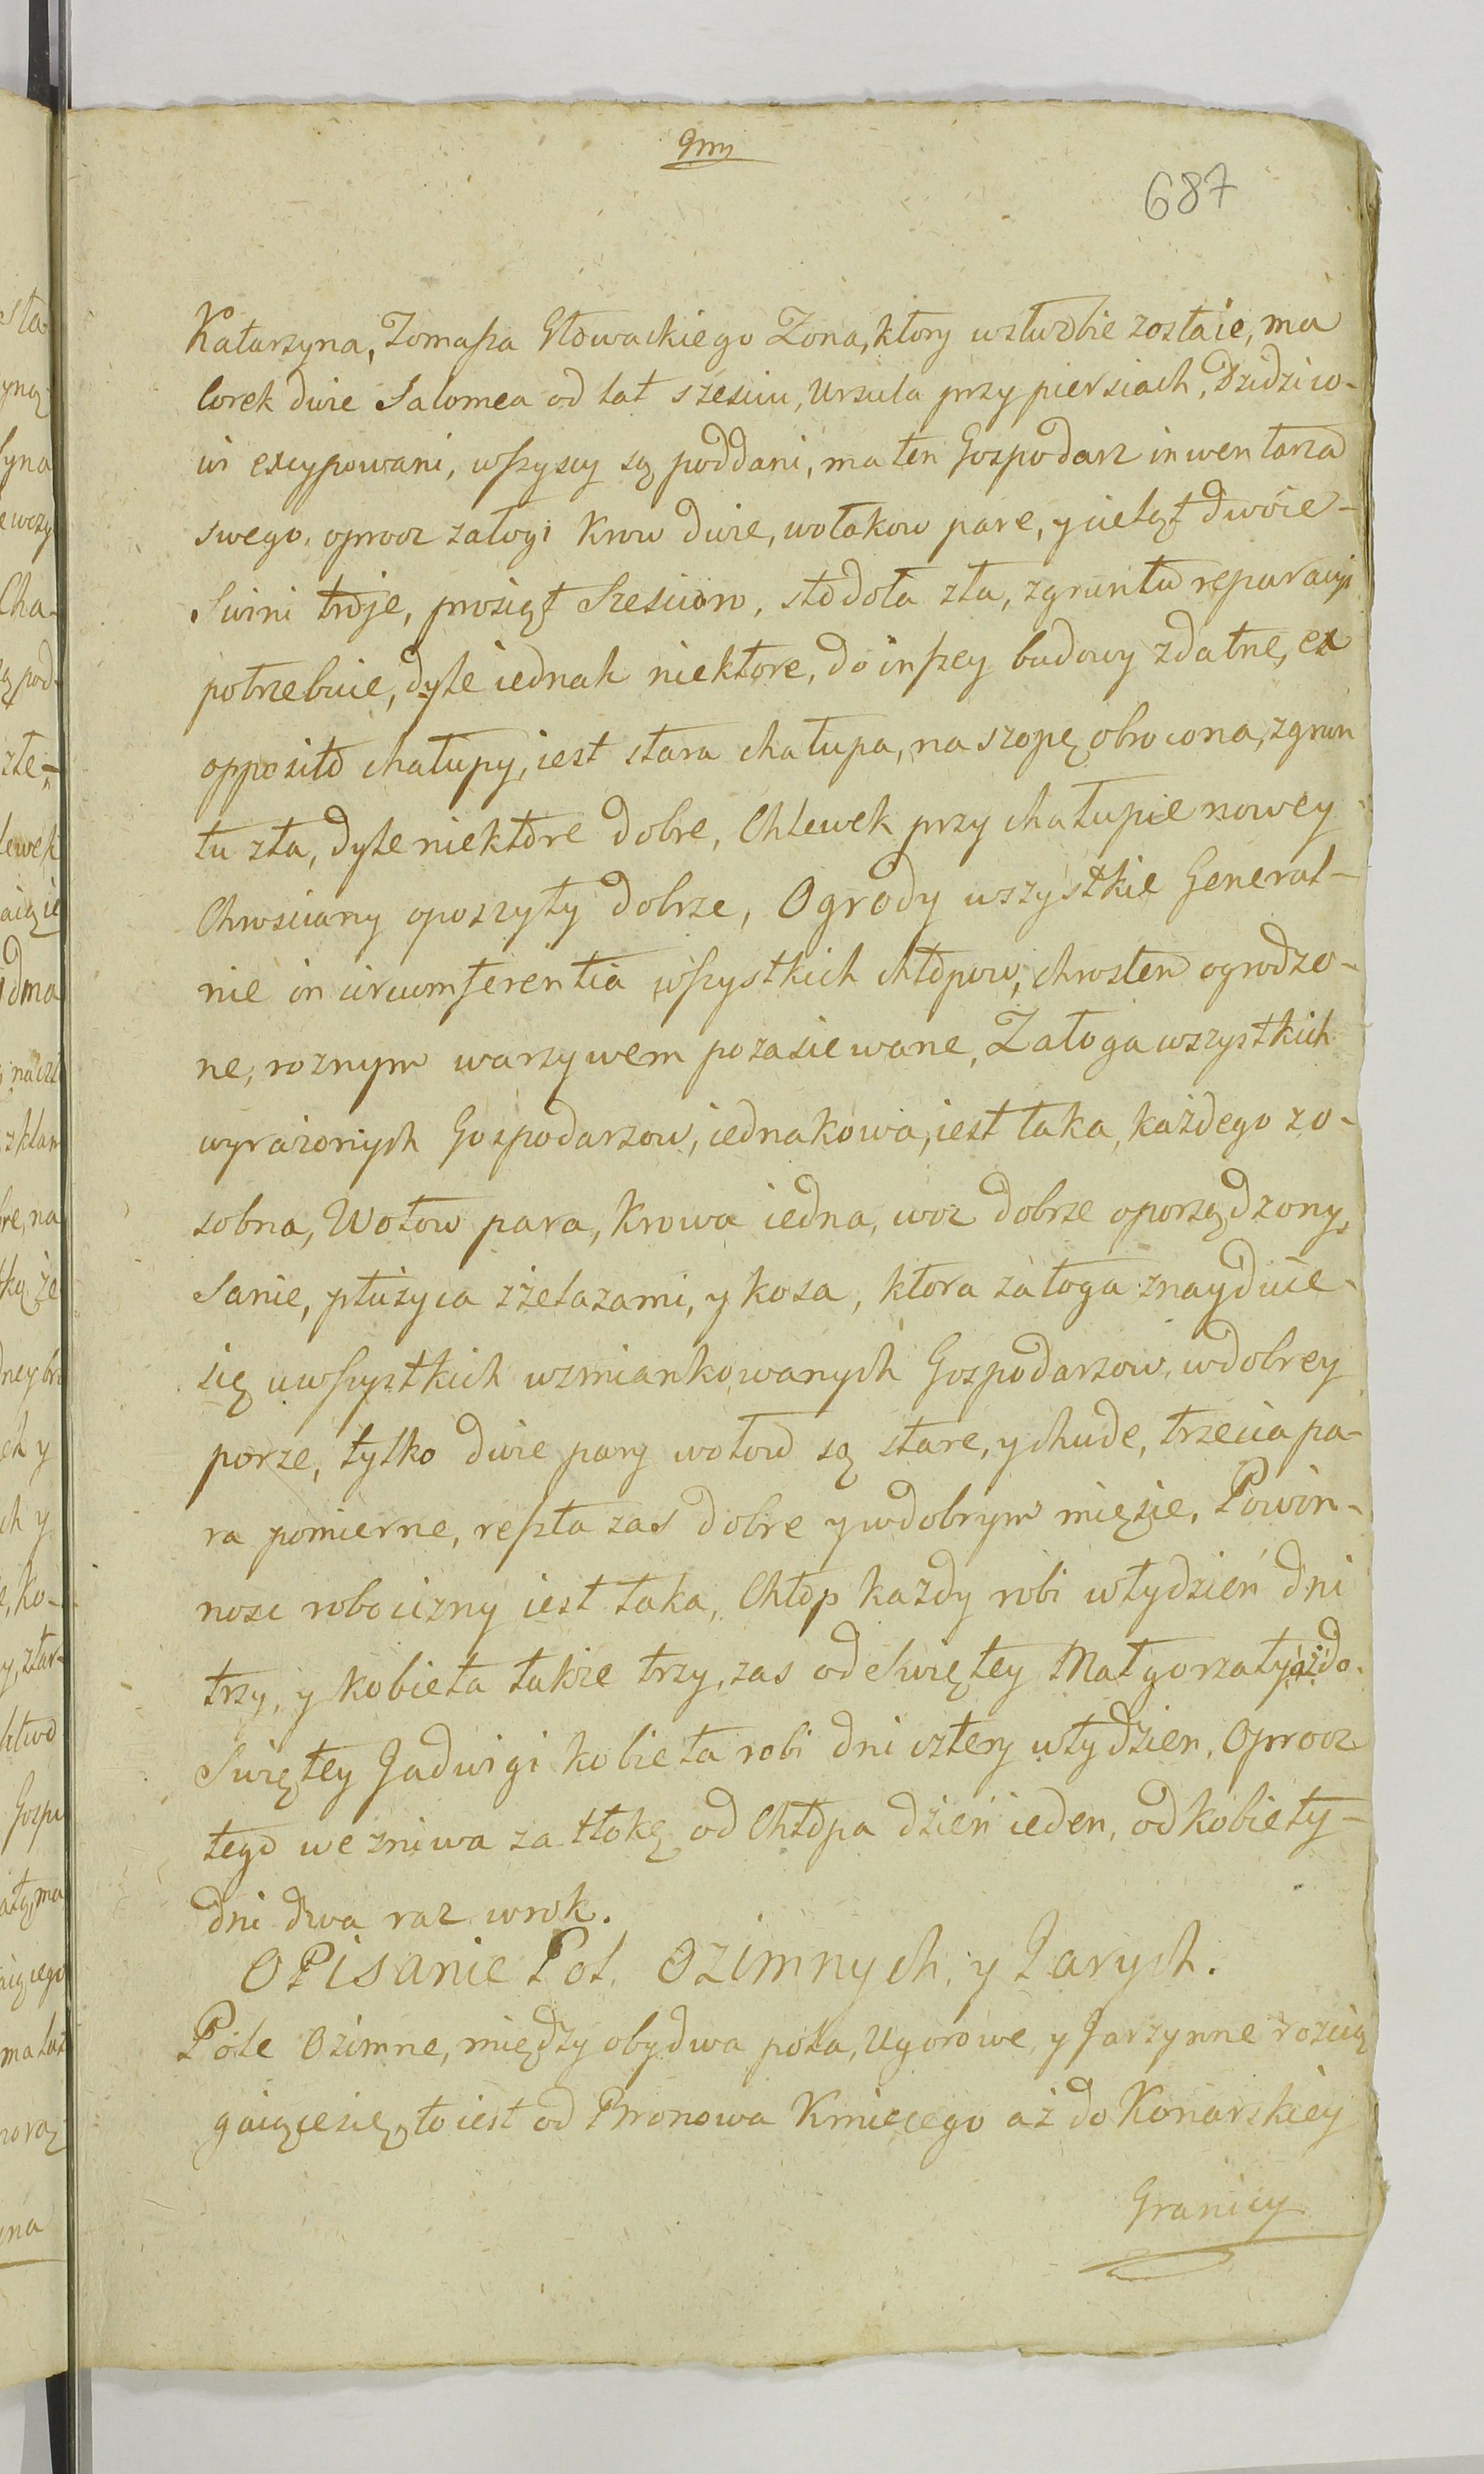 9ny
687
Katarzyna, Tomasza Głowackiego Zona, ktory wsłuzbie zostaie, ma
Corek dwie Salomea od lat szesciu, Urszula przy piersiach, Dzidzicy-
wi excypowani, wszyscy są poddani, ma ten Gospodarz inwentarza
swego, oprocz załogi Krow dwie, wołakow pare, y cieląt dwoie-
Swini troje, prosiąt Szescioro, stodoła zła, zgruntu reparacyi
potrzebuie, dyle iednak niektore, do inszey budowy zdatne, ex
opposito chałupy, iest stara chałupa, na szopę obrocona, zgrun
tu zła, dyle niektore dobre, Chlewek przy chałupie nowey
Chrosciany oposzyty dobrze, Ogrody wszystkie General-
nie in circumferentia wszystkich chłopow, chrostem ogrodzo-
ne, roznym warzywem pozasiewane, Załoga wszystkich
wyrazonych Gospodarzow, iednakowa, iest taka, każdego zo-
sobna, Wołow para, Krowa iedna, woz dobrze oporządzony,
Sanie, płużyca zżelazami, y kosa, ktora załoga znayduie-
się uwszystkich wzmiankowanych Gospodarzow, wdobrey
porze, tylko dwie pary wołow są stare, y chude, trzecia pa-
ra pomierne, reszta zas dobre y wdobrym mięsie. Powin-
nosc robocizny iest taka, Chłop każdy robi wtydzień dni
trzy, y kobieta także trzy, zas od Swiętey Małgorzaty aż do
Swiętey Jadwigi kobieta robi dni cztery wtydzien, Oprocz
tego we zniwa za tłokę od Chłopa dzień ieden, od kobiety-
dni dwa raz wrok.
OPisanie Pol Ozimnych, y Jarych.
Pole Ozimne, między obydwa pola, Ugorowe, y Jarzynne rozcią
gaiącesię, to iest od Bronowa Kmiecego aż do Konarskiey
Granicy